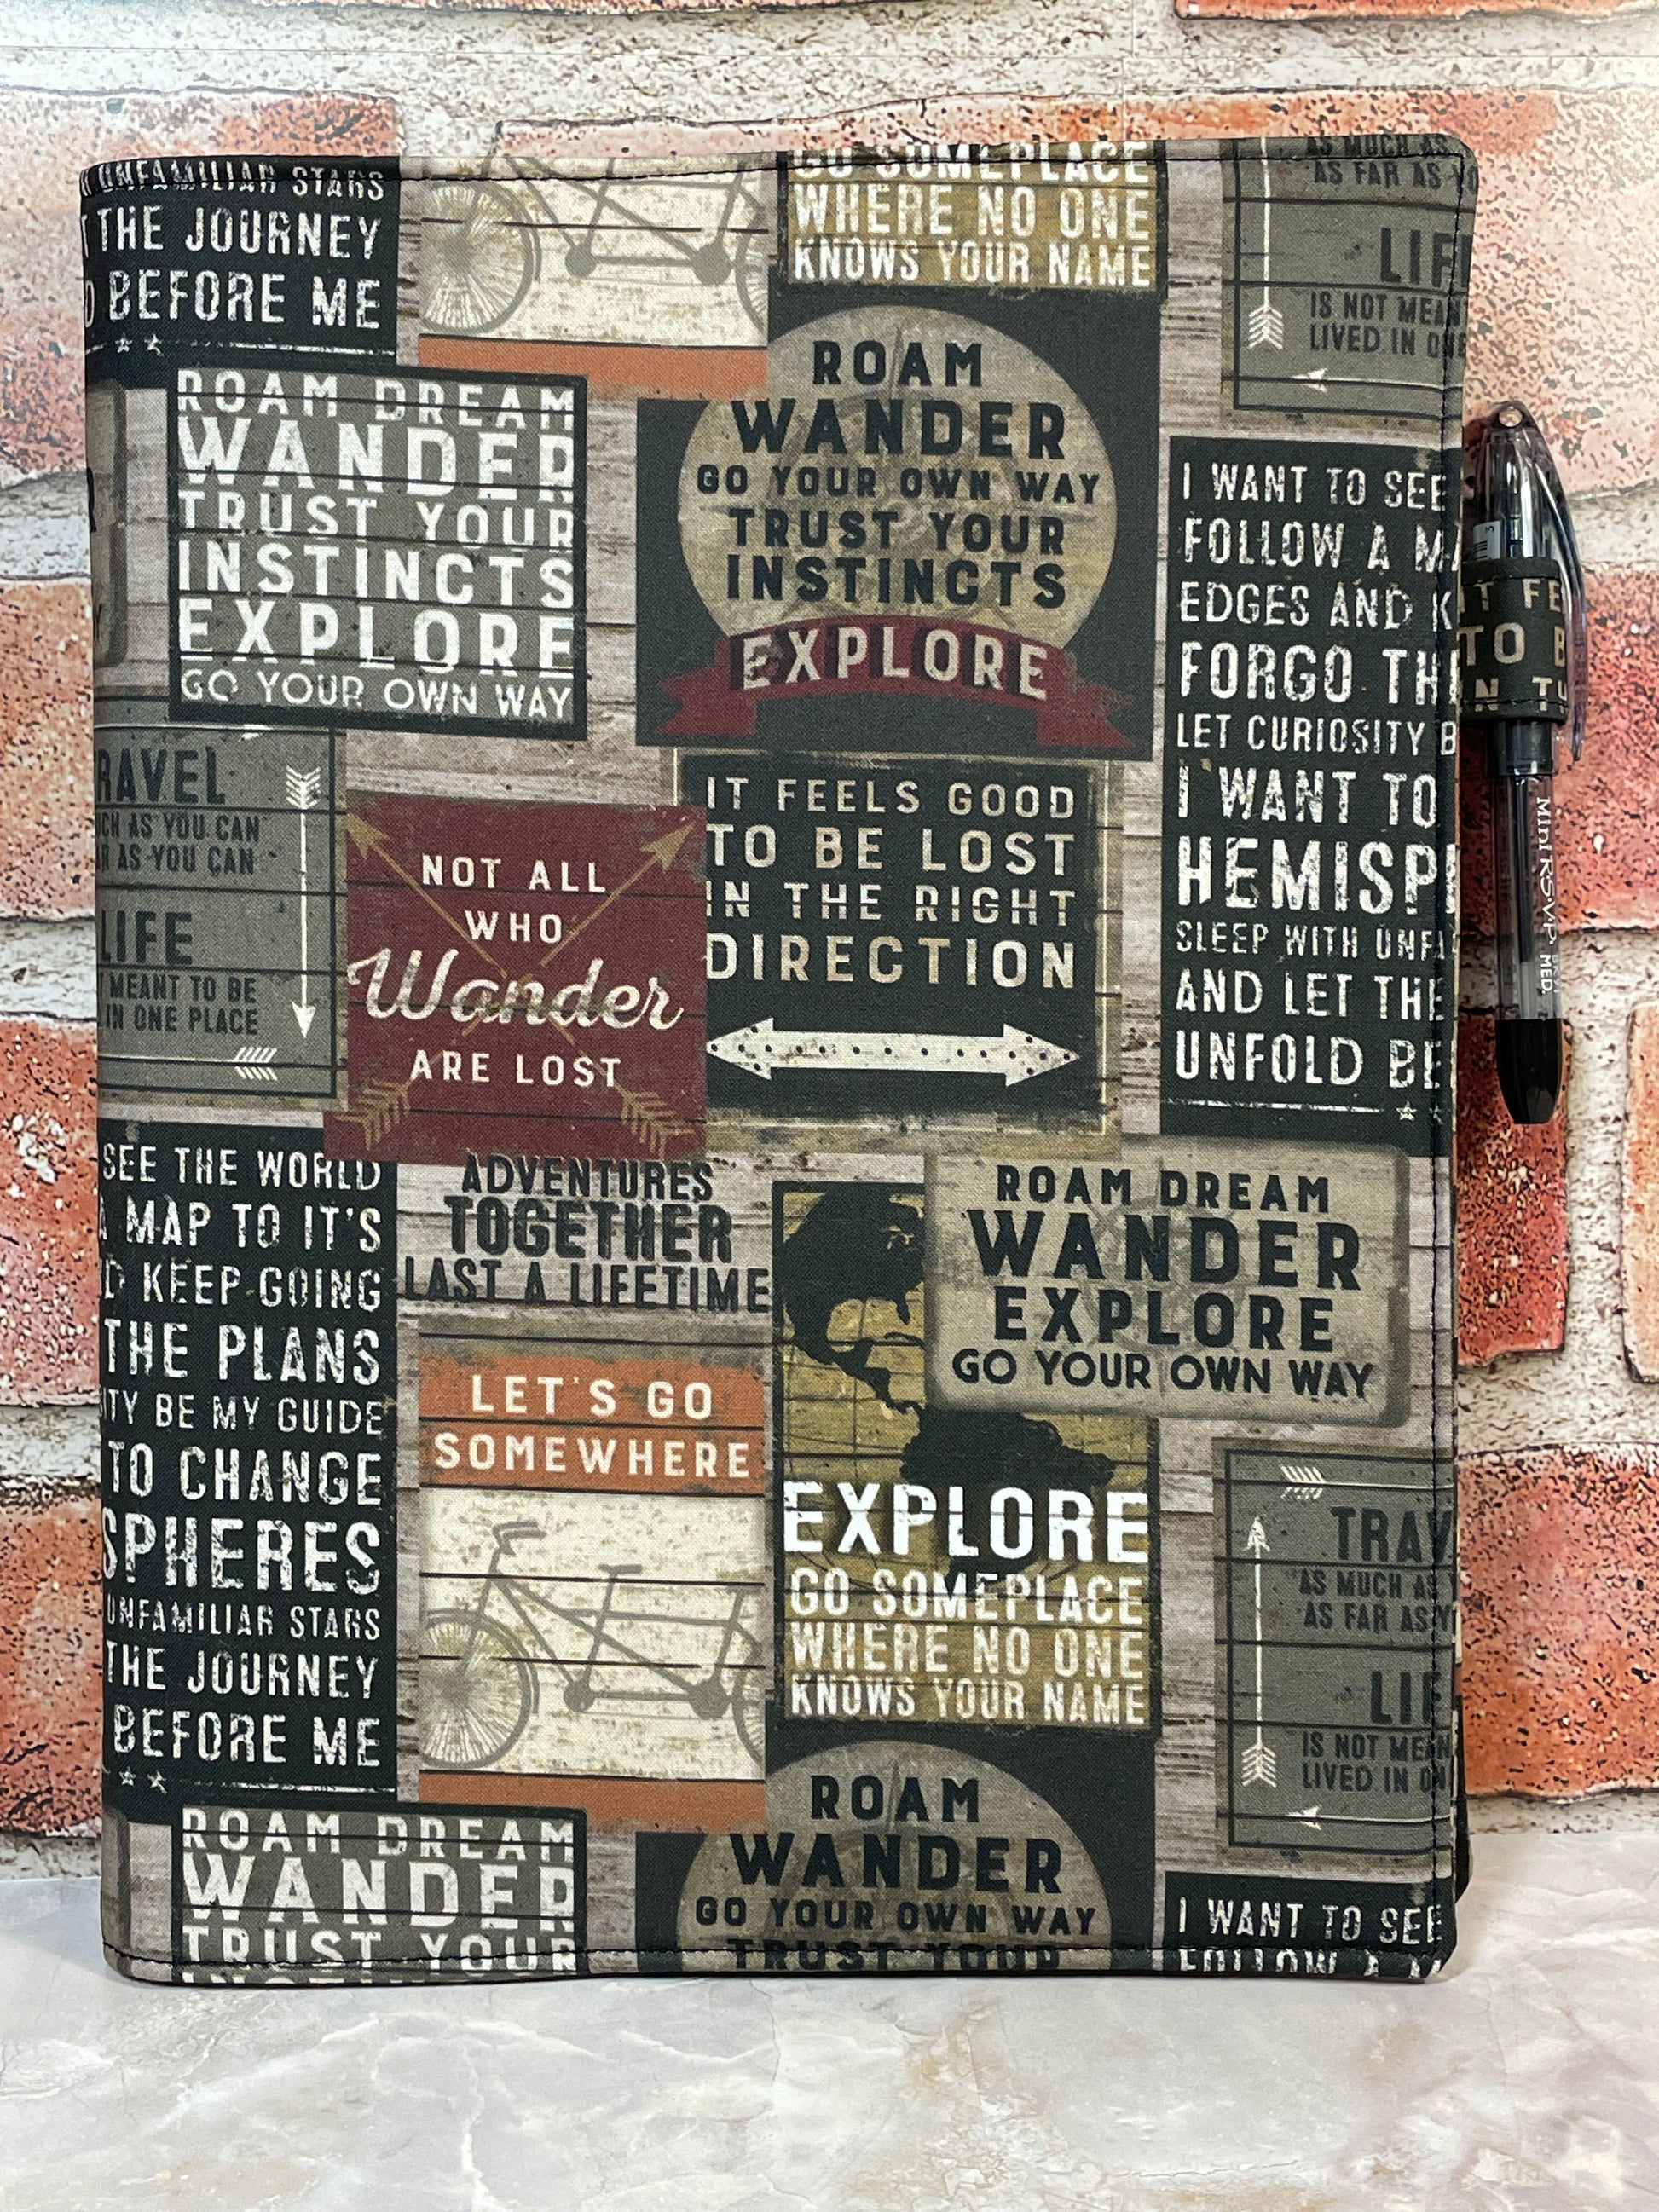 UNFAMILIAR STARS
THE JOURNEY
BEFORE ME
GO SOMEPLACE
WHERE NO ONE
KNOWS YOUR NAME
AS MUCH AS
AS FAR AS YO
LIF
IS NOT MEAN
LIVED IN ONE
ROAM DREAM
WANDER
TRUST YOUR
INSTINCTS
EXPLORE
GO YOUR OWN WAY
ROAM
WANDER
GO YOUR OWN WAY
TRUST YOUR
INSTINCTS
EXPLORE
I WANT TO SEE
FOLLOW A MA
EDGES AND K
FORGO THE
LET CURIOSITY B
I WANT TO
HEMISPH
SLEEP WITH UNFA
AND LET THE
UNFOLD BE
IT FE
TO B
IN
MINI RSVP MED.
RAVEL
CH AS YOU CAN
AR AS YOU CAN
LIFE
MEANT TO BE
IN ONE PLACE
NOT ALL
WHO
Wander
ARE LOST
IT FEELS GOOD
TO BE LOST
IN THE RIGHT
DIRECTION
SEE THE WORLD
A MAP TO IT'S
D KEEP GOING
THE PLANS
ITY BE MY GUIDE
TO CHANGE
SPHERES
UNFAMILIAR STARS
THE JOURNEY
BEFORE ME
ADVENTURES
TOGETHER
LAST A LIFETIME
LET'S GO
SOMEWHERE
ROAM DREAM
WANDER
EXPLORE
GO YOUR OWN WAY
EXPLORE
GO SOMEPLACE
WHERE NO ONE
KNOWS YOUR NAME
TRAV
AS MUCH AS Y
AS FAR AS Y
LIF
IS NOT MEAN
LIVED IN ON
ROAM DREAM
WANDER
TRUST YOUR
ROAM
WANDER
GO YOUR OWN WAY
TRUST YOUR
I WANT TO SEE
FOLLOW A M